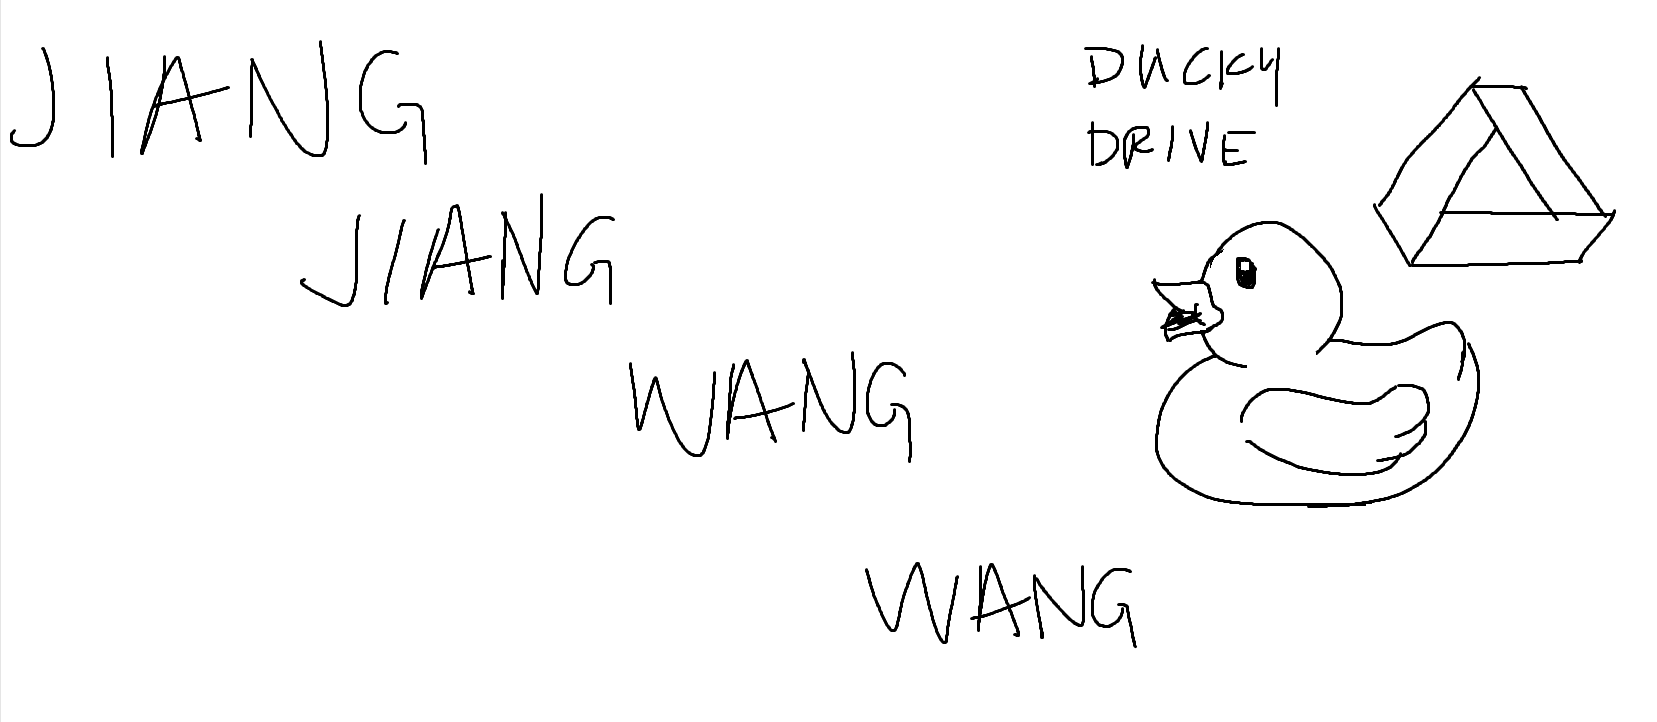 JIANG
JIANG
WANG
WANG
DUCKY
DRIVE